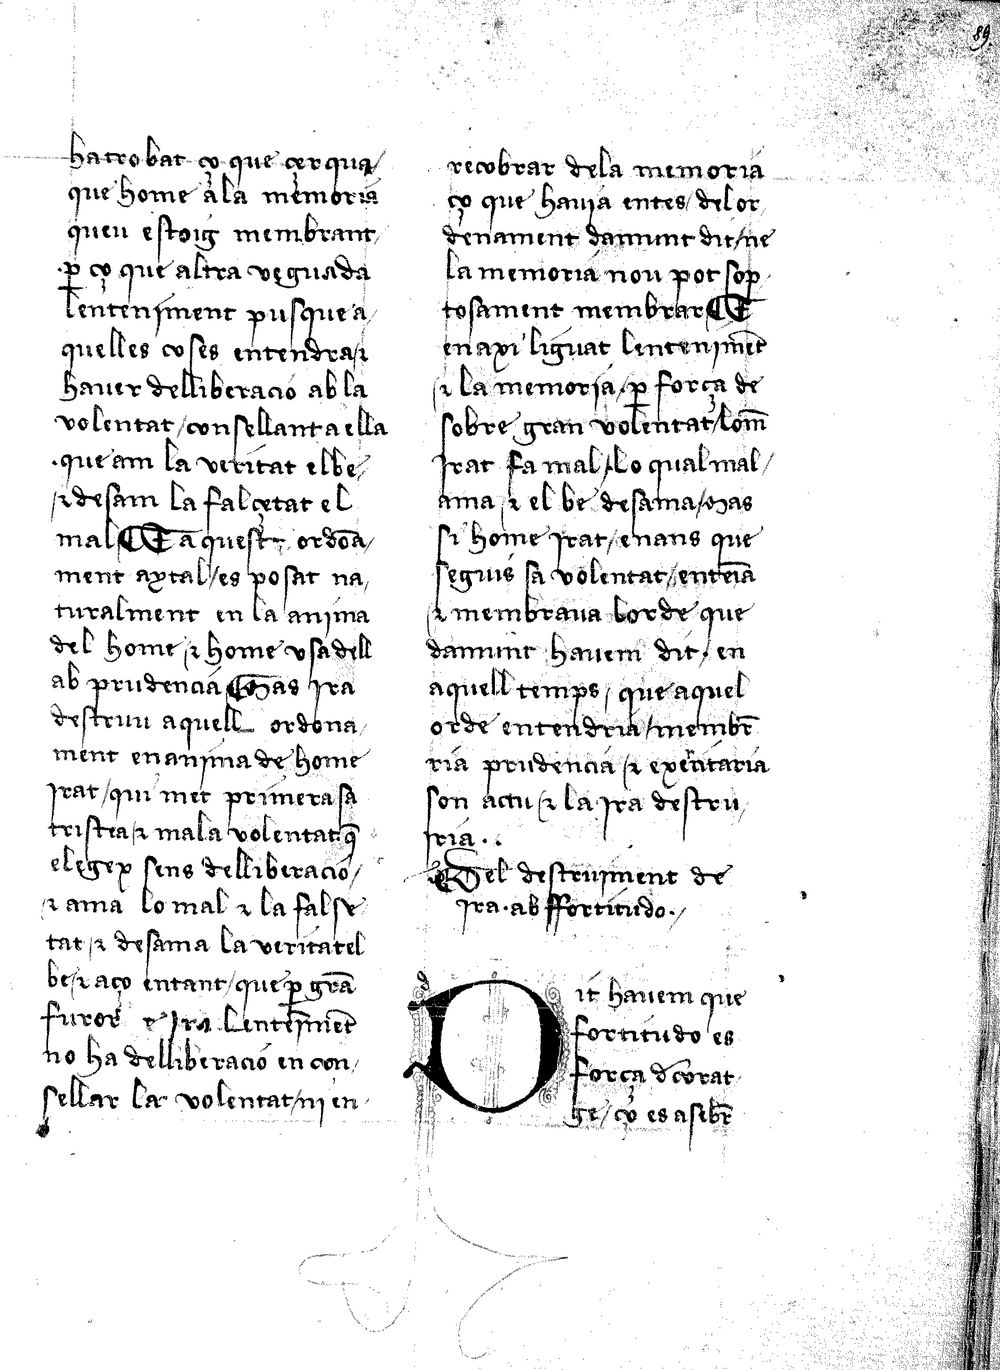 89.
ha trobat ço que cerqua /
que home a la memoria
queu estoig membrant /
· p̱ ço que altra veguada
lenteniment pus que a /
quelles coses entendra / ⁊
hauer delliberacio ab la
volentat / consellant a ella
· que am la veritat el be /
/ ⁊ desam la falcetat el
mal ¶ Aquest ordōa /
ment aytal / es posat na /
turalment en la anima
del home / ⁊ home vsa dell
ab prudencia ¶ Mas Ira
destruu aquell ordona /
ment en anima de home
Irat / qui met primera sa
tristea / ⁊ mala volentat q̄
elegex sens delliberacio /
⁊ ama lo mal ⁊ la false
tat / ⁊ desama la veritat el
be / ⁊ aço entant / que p̱ grā
furor e Ira lenteni̅me̅t
no ha delliberacio en con /
sellar la volentat / ni en ·
recobrar de la memoria
ço que hauia entes / del or /
denament damunt dit / ne
la memoria nou pot sop /
tosament membrar ¶ E
en axi liguat lentenime̅t
/ ⁊ la memoria / p̱ força de
sobre gran volentat / lom̅
Irat fa mal / lo qual mal /
ama / ⁊ el be desama / Mas
si home Irat / enans que
seguis sa volentat / enteīa
⁊ membraua lorde que
damunt hauem dit / en
aquell temps / que aquel
orde entendria / membr̅
ria prudencia / ⁊ exercitaria
son actu / ⁊ la Ira destru /
iria · .
¶ Del destruiment de
Ira · ab ffortitudo · /
D it hauem que
fortitudo es
força d̅ corat
ge / ço es a sebr̅